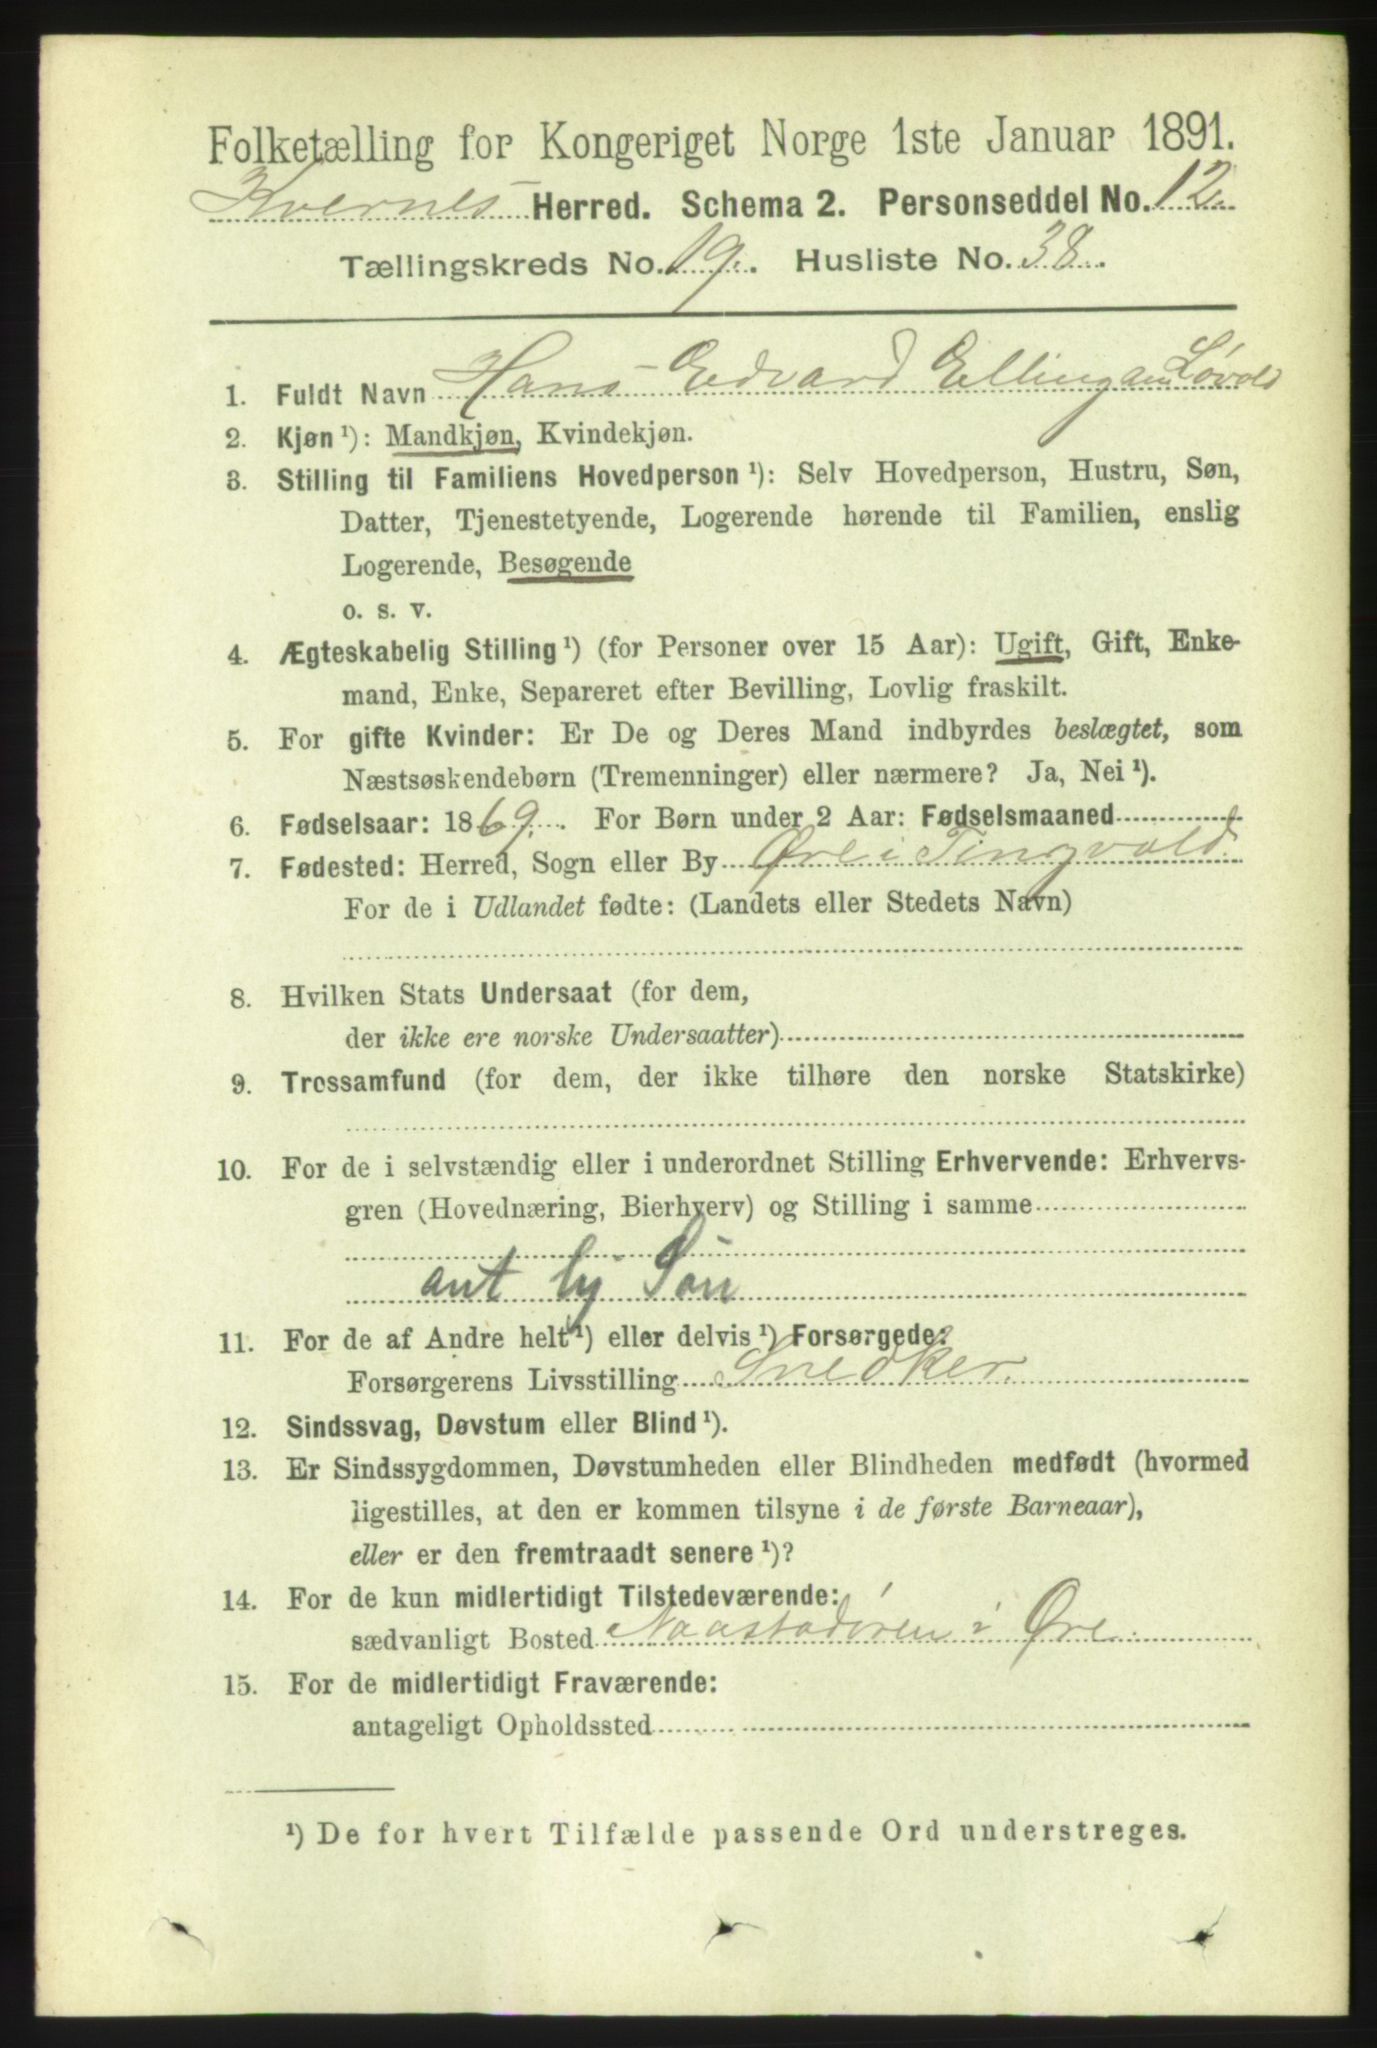 Folketælling for Kongeriget Norge 1ste Januar 1891.
Kvernes Herred. Schema 2. Personseddel No. 12.
Tællingskreds No. 19. Husliste No. 38.
1. Fuldt Navn Hans Edvard Ellingsen Løvold
2. Kjøn ¹): Mandkjøn, Kvindekjøn.
3. Stilling til Familiens Hovedperson ¹): Selv Hovedperson, Hustru, Søn,
Datter, Tjenestetyende, Logerende hørende til Familien, enslig
Logerende, Besøgende
o. s. v.
4. Ægteskabelig Stilling ¹) (for Personer over 15 Aar): Ugift, Gift, Enke-
mand, Enke, Separeret efter Bevilling, Lovlig fraskilt.
5. For gifte Kvinder: Er De og Deres Mand indbyrdes beslægtet, som
Næstsøskendebørn (Tremenninger) eller nærmere? Ja, Nei ¹).
6. Fødselsaar: 1869. For Børn under 2 Aar: Fødselsmaaned
7. Fødested: Herred, Sogn eller By Øre i Tingvold
For de i Udlandet fødte: (Landets eller Stedets Navn)
8. Hvilken Stats Undersaat (for dem,
der ikke ere norske Undersaatter)
9. Trossamfund (for dem, der ikke tilhøre den norske Statskirke)
10. For de i selvstændig eller i underordnet Stilling Erhvervende: Erhvervs-
gren (Hovednæring, Bierhverv) og Stilling i samme
ant hj Søn
11. For de af Andre helt ¹) eller delvis ¹) Forsørgede:
Forsørgerens Livsstilling Snedker.
12. Sindssvag, Døvstum eller Blind ¹).
13. Er Sindssygdommen, Døvstumheden eller Blindheden medfødt (hvormed
ligestilles, at den er kommen tilsyne i de første Barneaar),
eller er den fremtraadt senere ¹)?
14. For de kun midlertidigt Tilstedeværende:
sædvanligt Bosted Naastadøren i Øre
15. For de midlertidigt Fraværende:
antageligt Opholdssted
¹) De for hvert Tilfælde passende Ord understreges.